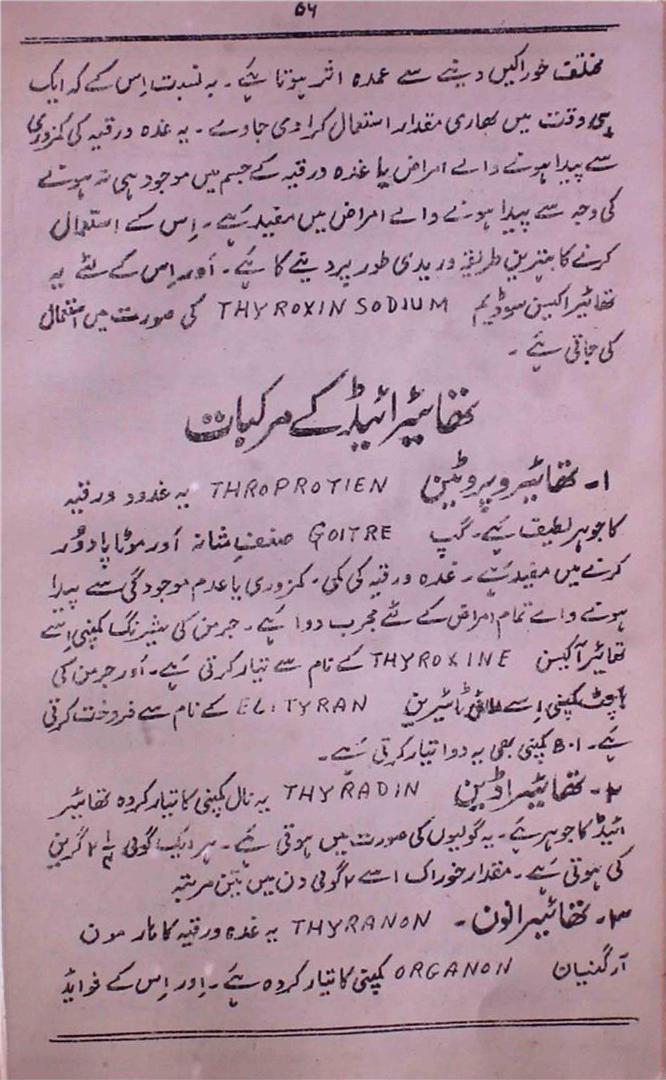 ۵۶
مختلف خوراکیں دینے سے عمدہ اثر ہوتا ہے۔ بہ نسبت اِس کے کہ ایک
ہی وقت میں بھاری مقدار استعمال کرا دی جاوے۔ یہ غدہ ورقیہ کی کمزوری
سے پیدا ہونے والے امراض یا غدہ ورقیہ کے جسم میں موجود ہی نہ ہونے
کی وجہ سے پیدا ہونے والے امراض میں مفید ہے۔ اِس کے استعمال
کرنے کا بہترین طریقہ وریدی طور پر دینے کا ہے۔ اَور اِس کے لئے یہ
تھائیراکسین سوڈیم THYROXIN SODIUM کی صورت میں استعمال
کی جاتی ہے۔
تھائیرائیڈ کے مرکبات
۱۔ تھائیروپروٹین THROPROTIEN یہ غدود ورقیہ
کا جوہر لطیف ہے۔ گِپ GOITRE ضعفِ مثانہ اَور موٹاپا دُور
کرنے میں مفید ہے۔ غدہ ورقیہ کی کمی۔ کمزوری یا عدم موجودگی سے پیدا
ہونے والے تمام امراض کے لئے مجرب دوا ہے۔ جرمن کی شیرنگ کمپنی اِسے
تھائیراکسن THYROXINE کے نام سے تیار کرتی ہے۔ اَور جرمن کی
کمپنی اِسے ELITYRAN کے نام سے فروخت کرتی
ہے۔ B.I کمپنی بھی یہ دوا تیار کرتی ہے۔
۲۔ تھائیراڈین THYRADIN یہ نال کمپنی کا تیار کردہ تھائیر
ائیڈ کا جوہر ہے۔ یہ گولیوں کی صورت میں ہوتی ہے۔ ہر ایک گولی ۲ گرین
کی ہوتی ہے۔ مقدار خوراک ا سے ۲ گولی دن میں تین مرتبہ
۳۔ تھائیرانون۔ THYRANON یہ غدہ ورقیہ کا ہارمون
آرگنیان ORGANON کمپنی کا تیار کردہ ہے۔ اِور اِس کے فوایٔد